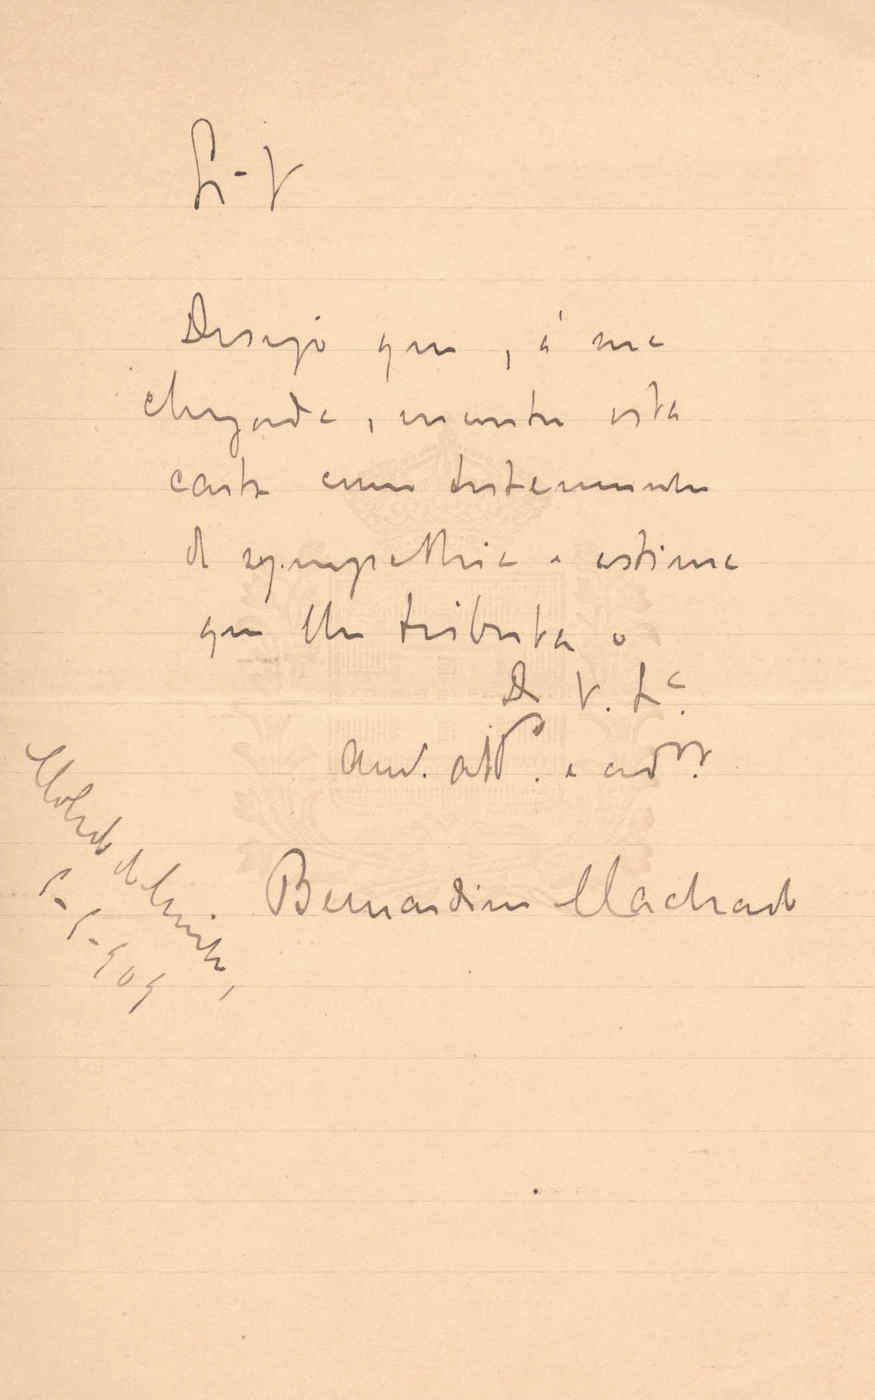 Desejo que, á sua
chegada, encontre esta
carta como testemunho
de sympathia e estima
que lhe tributa o
De V. Ex.ª
Am.º att.º e
Bernardino Machado